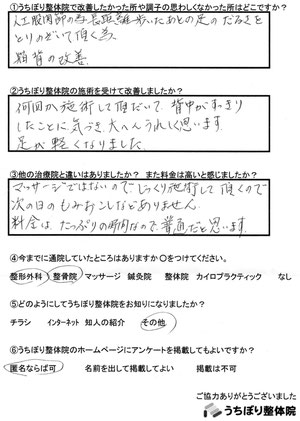 ①うちぼり整体院で改善したかった所や調子の思わしくなかった所はどこですか？
人工股関節の為長距離歩いたあとの足のだるさを
とりのぞいて頂く為、
猫背の改善
②うちぼり整体院の施術を受けて改善しましたか？
何回か施術して頂だいて、背中がすっきり
したことに気づき大へんうれしく思います。
足が軽くなりました。
③他の治療院と違いはありましたか？ また料金は高いと感じましたか？
マッサージではないのでじっくり施術して頂くので
次の日のもみおこしなどありません。
料金は、たっぷりの時間なので、普通だと思います。
④今までに通院していたところはありますか〇をつけてください。
整形外科 整骨院 マッサージ 鍼灸院 整体院 カイロプラクティック なし
⑤どのようにしてうちぼり整体院をお知りになりましたか？
チラシ インターネット 知人の紹介 その他
⑥うちぼり整体院のホームページにアンケートを掲載してもよいですか？
匿名ならば可 名前を出して掲載してよい 掲載は不可
ご協力ありがとうございました
うちぼり整体院